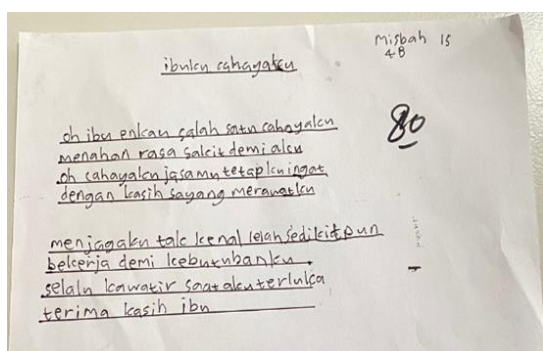 Misbah 15
4B
ibuku cahayaku
80
oh ibu enkau salah satu cahayaku
menahan rasa sakit demi aku
oh cahayaku jasamu tetap kuingat
dengan kasih sayang merawatku
menjagaku tak kenal lelah sedikit pun
bekerja demi kebutuhanku
selalu kawatir saat aku terluka
terima kasih ibu